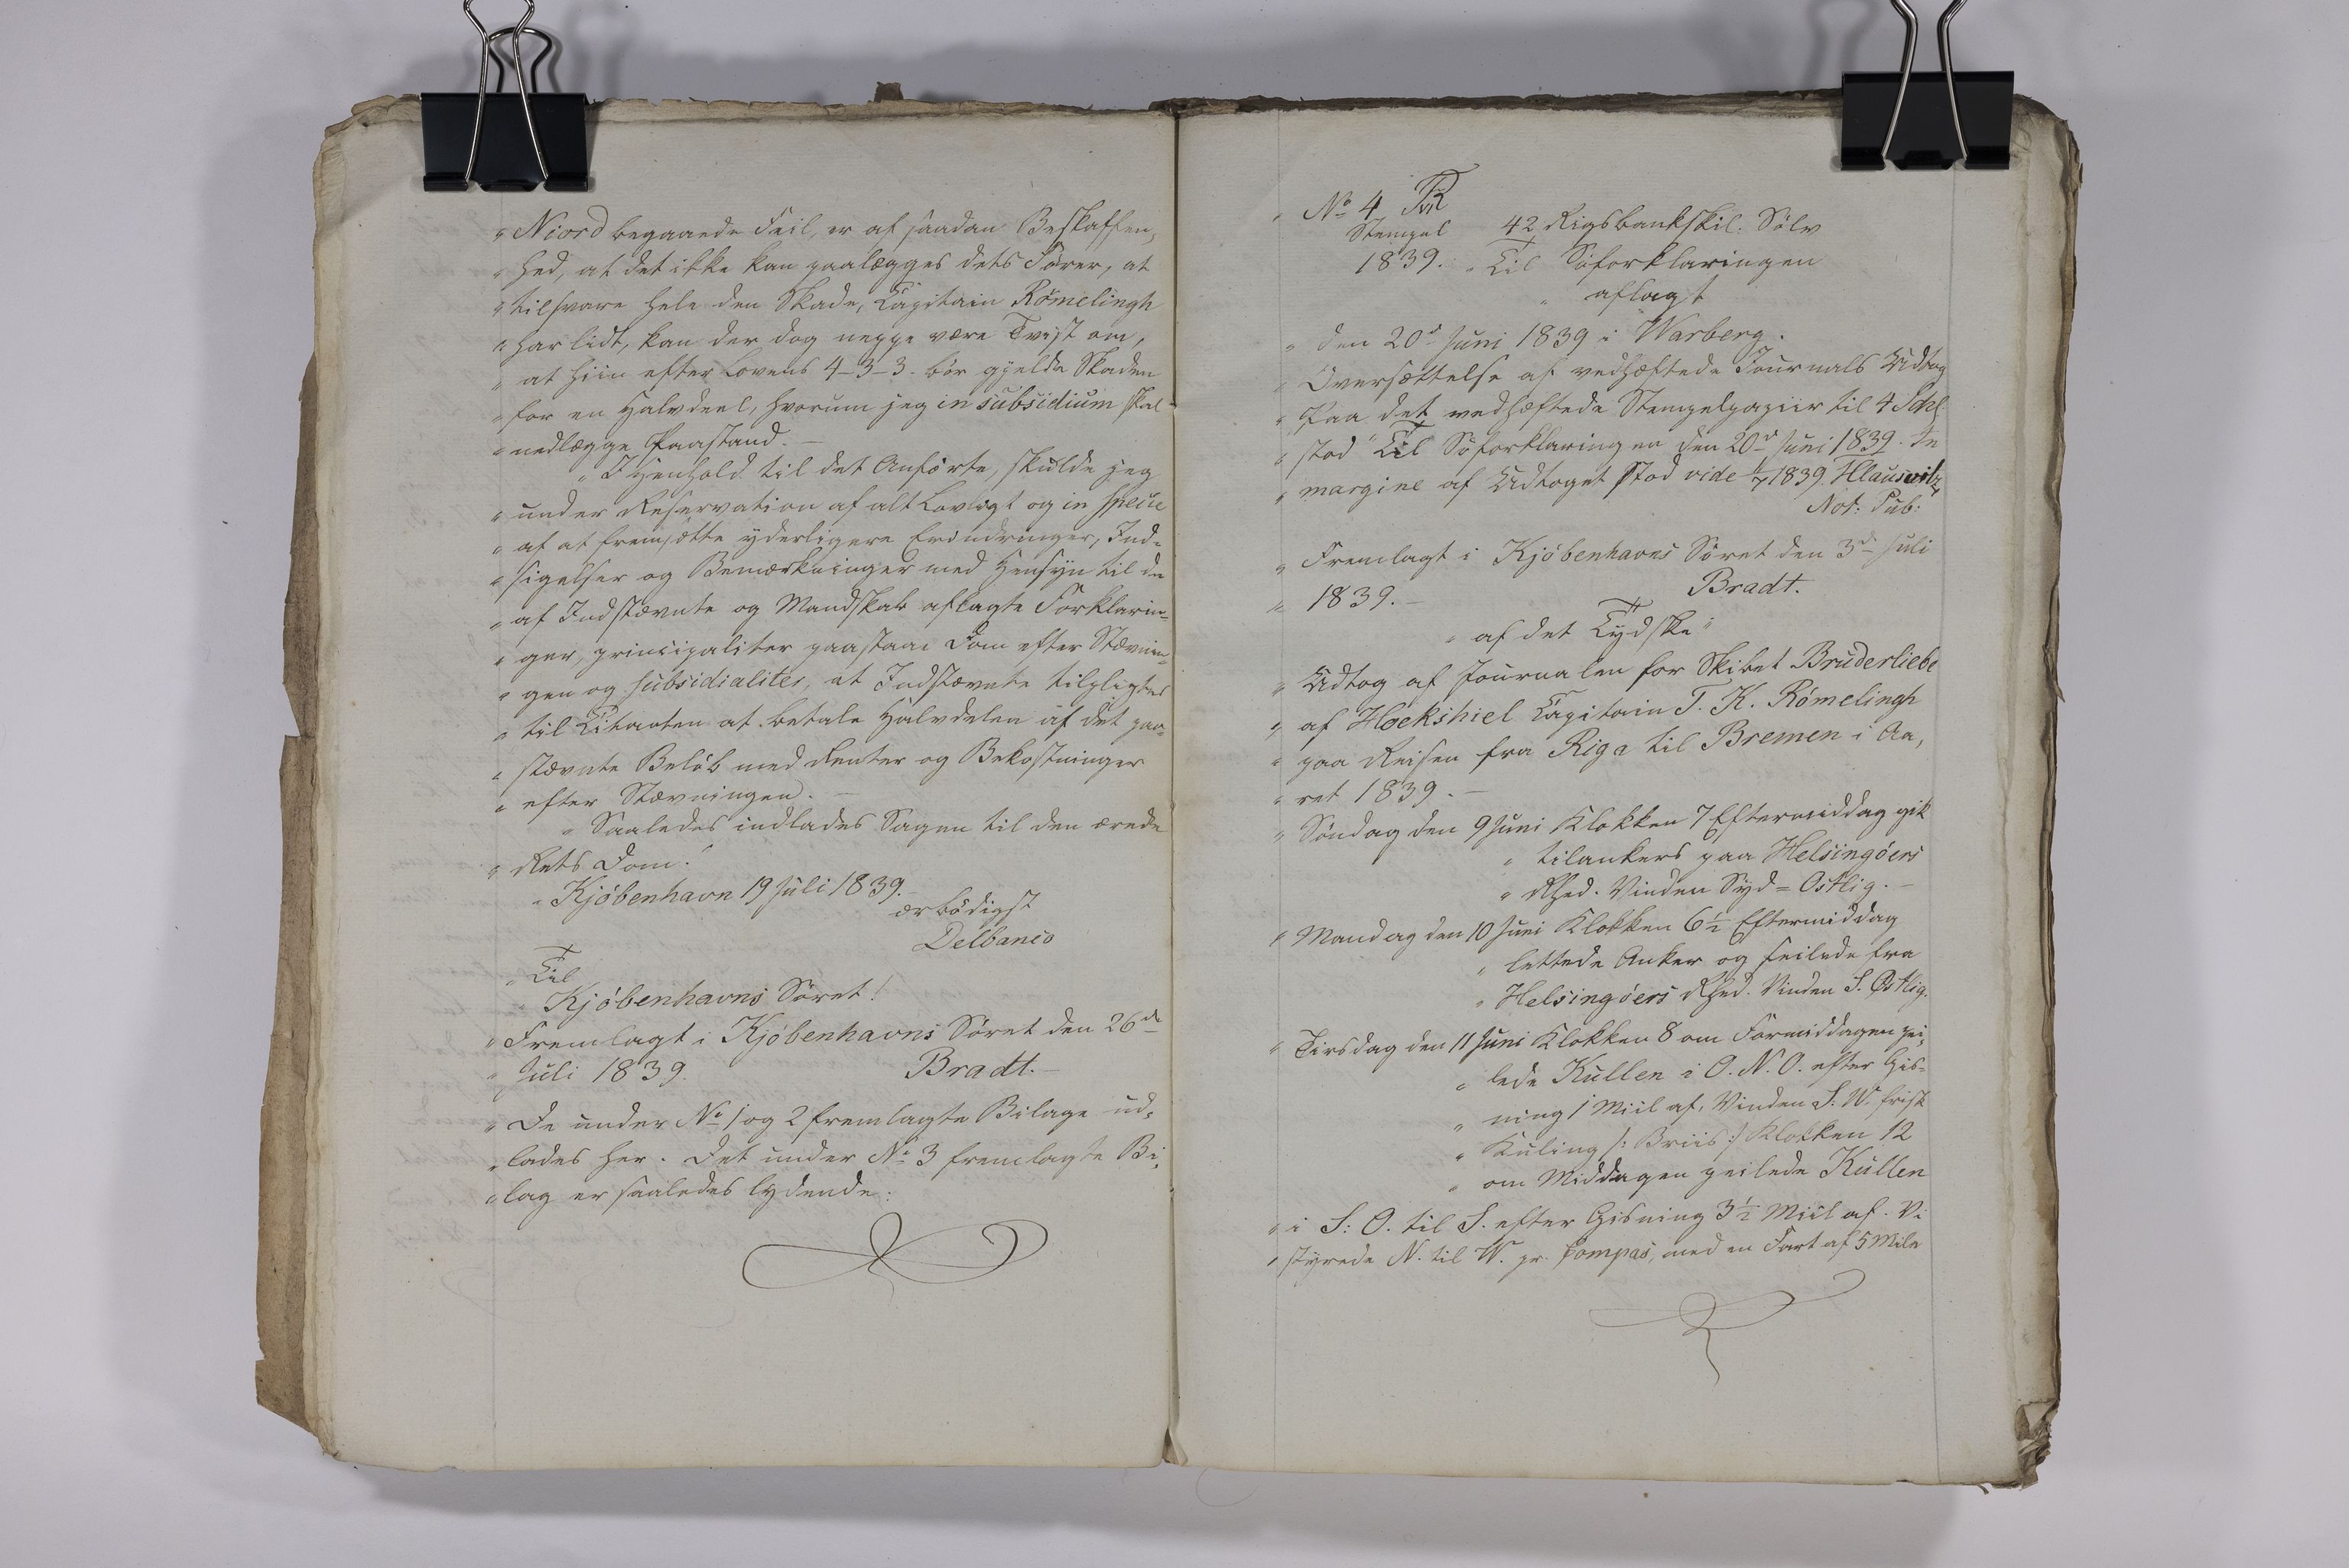 " Niord begaaede Feil, er af saadan Beskaffen,
" hed, at det ikke kan paalægges dets Förer, at
" tilsvare hele den Skade, Capitain Römelingh
" har lidt, kan der dog neppe være Tvist om,
" at hiin efter Lovens 4-3-3. bör gjelde Skaden
" for en Halvdeel, hvorum jeg in subsidium skal
" nedlægge Paastand. —
" I Henhold til det Anförte, skulde jeg
" under Reservation af alt Lovligt og in specie
" af at fremsætte yderligere Erindringer, Ind-
" sigelser og Bemærkninger med Hensyn til de
" af Indstævnte og Mandskab aflagte Forklarin-
" ger, principaliter paastaae Dom efter Stævnin-
" gen og subsidialiter, at Indstævnte tilpligtes
" til Citanten at betale Halvdelen af det paa-
" stævnte Belöb med Renter og Bekostninger
" efter Stævningen. —
" Saaledes indlades Sagen til den ærede
" Rets Dom.
" Kjöbenhavn 19 Juli 1839. —
ærbödigst
Delbanco
" Til
" Kjöbenhavns Söret!
" Fremlagt i Kjöbenhavns Söret den 26de
" Juli 1839. Bradt. —
" De under No 1 og 2 fremlagte Bilage ud-
" lades her. Det under No 3 fremlagte Bi-
" lag er saaledes lydende:
" No 4
Stempel 42 Rigsbankskil. Sölv
1839. " Til Söforklaringen
" aflagt
" den 20d Juni 1839 i Warberg.
" Oversættelse af vedhæftede Journals Udtog
" Paa det vedhæftede Stempelpapiir til 4 Schl
" stod "Til Söforklaringen den 20d Juni 1839. In
" margine af Udtoget stod vide 1839. Hlauswitz
Not: Pub:
" Fremlagt i Kjöbenhavns Söret den 3d Juli
" 1839. — Bradt.
" af det Tydske"
" Udtog af Journalen for Skibet Bruderliebe
" af Hoekshiel Capitain T. K. Römelingh
" paa Reisen fra Riga til Bremen i Aa,
" ret 1839. —
" Söndag den 9 Juni Klokken 7 Eftermiddag gik
" tilankers paa Helsingöers
" Rhed. Vinden Syd-Ostlig. —
" Mandag den 10 Juni Klokken 6½ Eftermiddag
" lettede Anker og seilede fra
" Helsingöers Rhed. Vinden S. Östlig.
" Tirsdag den 11 Juni Klokken 8 om Formiddagen pei,
" lede Kullen i O. N. O. efter Gis-
" ning 1 Miil af, Vinden S. W. frisk
" Kuling /: Briis :/ Klokken 12
" om Middagen peilede Kullen
" i S: O. til S. efter Gisning 3½ Miil af. Vi
" styrede N. til W. pr. Compas, med en Fart af 5 Mile